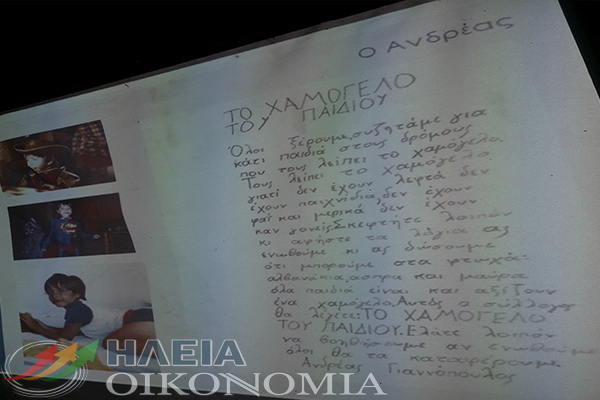 Ο Ανδρέας
ΤΟ ΧΑΜΟΓΕΛΟ
ΤΟΥ ΠΑΙΔΙΟΥ
Όλοι ξέρουμε,συζητάμε για
κάτι παιδιά στους δρόμους
που τους λείπει το χαμόγελο.
Τους λείπει το χαμόγελο
γιατί δεν έχουν λεφτά,δεν
έχουν παιχνίδια,δεν έχουν
φαΐ και μερικά δεν έχουν
καν γονείς.Σκεφτήτε λοιπόν
κι αφήστε τα λόγια ας
ενωθούμε κι ας δώσουμε
ότι μπορούμε στα φτωχά:
αλβανάκια,άσπρα και μαύρα
όλα παιδιά είναι και αξίζουν
ένα χαμόγελο.Αυτός ο σύλλογος
θα λέγεται:ΤΟ ΧΑΜΟΓΕΛΟ
ΤΟΥ ΠΑΙΔΙΟΥ.Ελάτε λοιπόν
να βοηθήσουμε αν ενωθούμε
όλοι θα τα καταφέρουμε
Ανδρέας Γιαννόπουλος
ΗΛΕΙΑ
ΟΙΚΟΝΟΜΙΑ